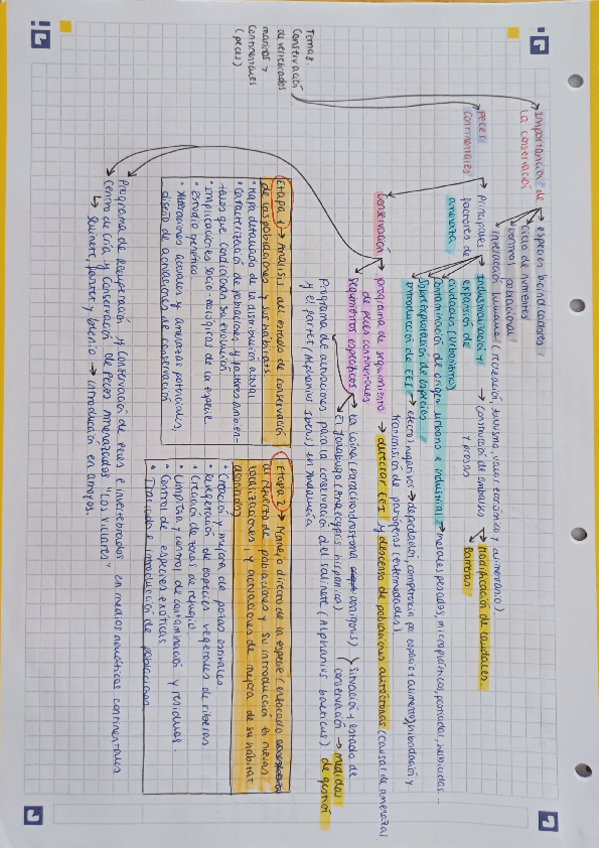 Tema 2:
Conservación
de vertebrados
marinos y
continentales
(peces)
Importancia de
la conservación
especies bioindicadoras
ciclo de nutrientes
control
interacción humana (recreación, turismo, valor económico y alimentario).
peces
continentales
Principales
factores de
amenaza
Industrialización y
expansión de
ciudades (urbanismo)
construcción de embalses
y presas
Modificación de caudales
Barreras
Contaminación de origen urbano e industrial → metales pesados, microplásticos, pesticidas, herbicidas...
Sobreexplotación de especies
Introducción de EEI → efectos negativos → depredación, competencia por espacio y alimento, hibridación y
transmisión de patógenos (enfermedades)
Conservación
programa de seguimiento
de peces continentales
→ detectar EEI y descenso de poblaciones autóctonas (causas de amenaza)
Seguimientos específicos
La colmilleja
El Jarabugo (Anaecypris hispanica)
situación y estado de
conservación → medidas
de gestión
Programa de actuaciones para la conservación del salinete (Aphanius baeticus)
y el fartet (Aphanius iberus) en Andalucía
Etapa 1 → Análisis del estado de conservación
de las poblaciones y sus hábitats
• Mapa detallado de la distribución actual
• Caracterización de poblaciones y factores ambien-
tales que condicionan su evolución.
• Implicaciones socio-ecológicas de la especie
• Estudio genético
• Alteraciones actuales y amenazas potenciales,
diseño de actuaciones de conservación
Etapa 2 → Manejo directo de la especie (enfocado
al refuerzo de poblaciones y su introducción en nuevas
localizaciones, y actuaciones de mejora de su hábitat
asociadas)
• Creación y mejora de pozas estivales
• Regeneración de especies vegetales de riberas
• Creación de zonas de refugio
• Limpieza y control de contaminación y residuos
• Control de especies exóticas
• Traslado e introducción de poblaciones
Programa de Recuperación y Conservación de Peces e invertebrados en medios acuáticos continentales
Centro de Cría y Conservación de Peces Amenazados "Los Villares"
↳ Salinete, fartet y blenio → introducción en arroyos.